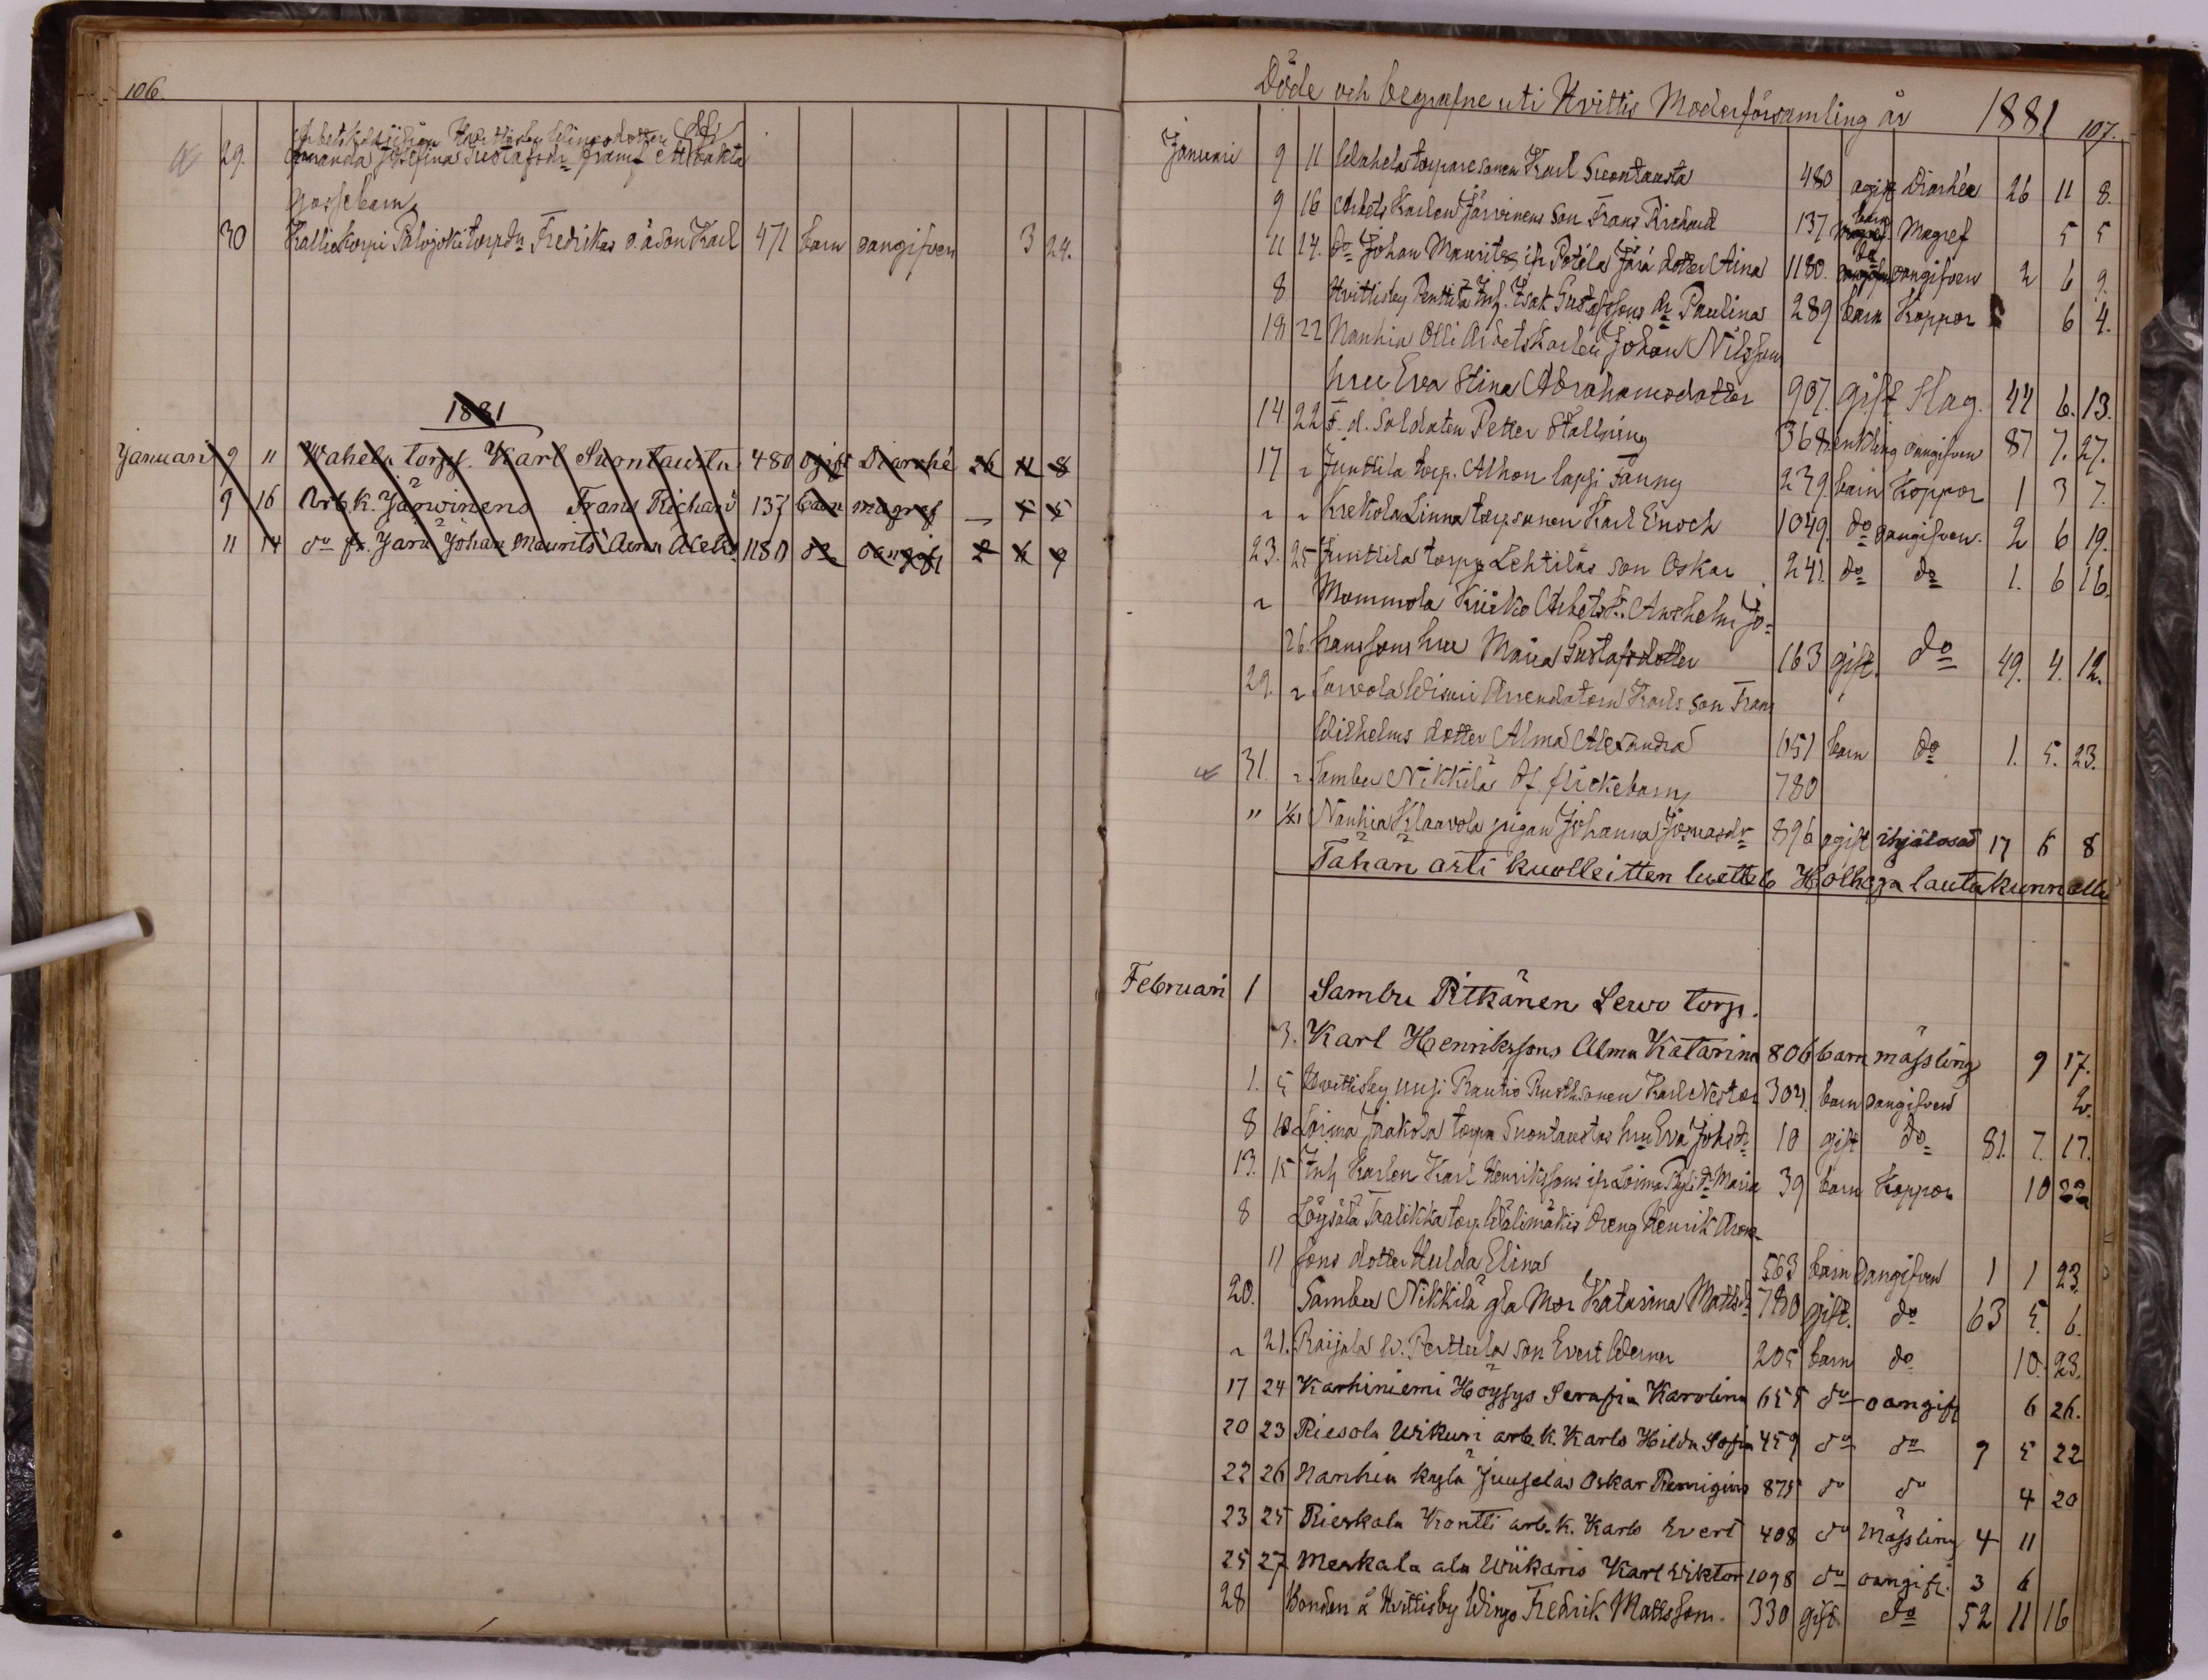 106.
29. Amanda Josefina Gustafsdr framf
gossebarn
30 Kalliokorpi Palojoki torpdr Fredrikas o. ä son Karl 471 barn oangifven 3 24.
1881
Januari 9 11 Wahela torpp. Karl Suontausta 480 ogift Diarrhé 26 11 8
9 16 Arb. k. Järwinens Frans Richard 137 barn magref _ 5 5
11 14 do fr. Jara Johan Maurits Aina 1180 do oangif 2 6 9
Döde och begrafne uti Hvittis Moderförsamling år 1881 107.
Januari 9 11 Wahela torparesonen Karl Suontausta 480 ogift Diarhée 26 11 8.
9 16 Arbets Karlen Järvinens Son Frans Richard 137 barn Magref 5 5
11 14. do Johan Maurits ifr Potila Jara dotter Aina 1180. do oangifven 2 6 9.
8 Hvittisby Penttilä Inh. Isak Gustafssons dr Paulina 289 barn Koppor 6 4.
18 22 Nanhia Olli Arbetskarlen Johan Nilssons
hru Eva Stina Abrahamsdotter 907. gift Slag. 44 6. 13.
14. 22 F. d. Soldaten Petter Stallning 368 enkling oangifven 87 7. 27.
17 " Junttila torp. Alhon lapsi Fanny 239. barn Koppor 1 3 7.
" " Krekola Linna torpsonen Karl Enoch 1049. do oangifven. 2 6 19.
23. 25 Junttila torp Lehtiläs son Oskar 241. do do 1. 6 16.
" Mommola Kiisko Arbetsk. Anshelm Jo-
26. hanssons hru Maria Gustafsdotter 163 gift. do 49. 4. 12.
29. " Sarvola Arrendatorn Karls son Frans
Wilhelms dotter Alma Alexandra 651 barn do 1. 5. 23.
31. " Sambu Nikkilä Df. flickebarn 780
" 1/21 Nanhia Klaavola pigan Johanna Josuasdr 896 ogift ihjälosad 17 6 8
Tähän asti kuolleitten luettelo Holhoja lautakunnalle
Februari 1 Sambu Pitkänen Lewo torp.
3. Karl Henrikssons Alma Katarina 806 barn mässling 9 17.
1. 5 Hvittisby Uusi Rautio Rusth.sonen Karl Nestor 304. barn oangifven 2.
8 10 Loima Jaakola torp Suontaustas hru Eva Johsdr 10 gift do 81. 7. 17.
13. 15 Inh Karlen Karl Henrikssons ifr Loima Pyli dr Maria 39 barn Koppor 10 22
8 Löysälä Taalikka torp. Wälimäkis dreng Henrik
11 sons dotter Hulda Elina 563 barn Oangifven 1 1 23.
20. Sambu Nikkilä gla Mor Katarina Mattsdr 780 gift. do 63 5. 6.
" 21. Raijala w. Perttula son Evert Werner 205 barn do 10. 28.
17 24 Karhiniemi Höysys Serafia Karolina 655 do oangif 6 26.
20 23 Riesola Wikuri arb. k. Karls Hilda Sofia 459 do do 9 5 22
22 26 Nanhia kylä Juuselas Oskar Remigius 875 do do 4 20
23 25 Rieskala Kontti arb. k. Karls Evert 408 do Mässling 4 11
25 27 Meskala ala Wiikaris Karl Wiktor 1098 do oangif. 3 6
28 Bonden å Hvittisby Wingo Fredrik Mattsson. 330 gift. do 52 11 16